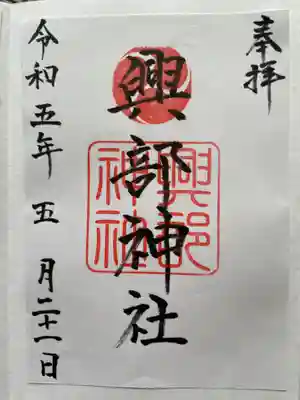 奉拝
興部神社
興部
神社
令和五年五月二十一日